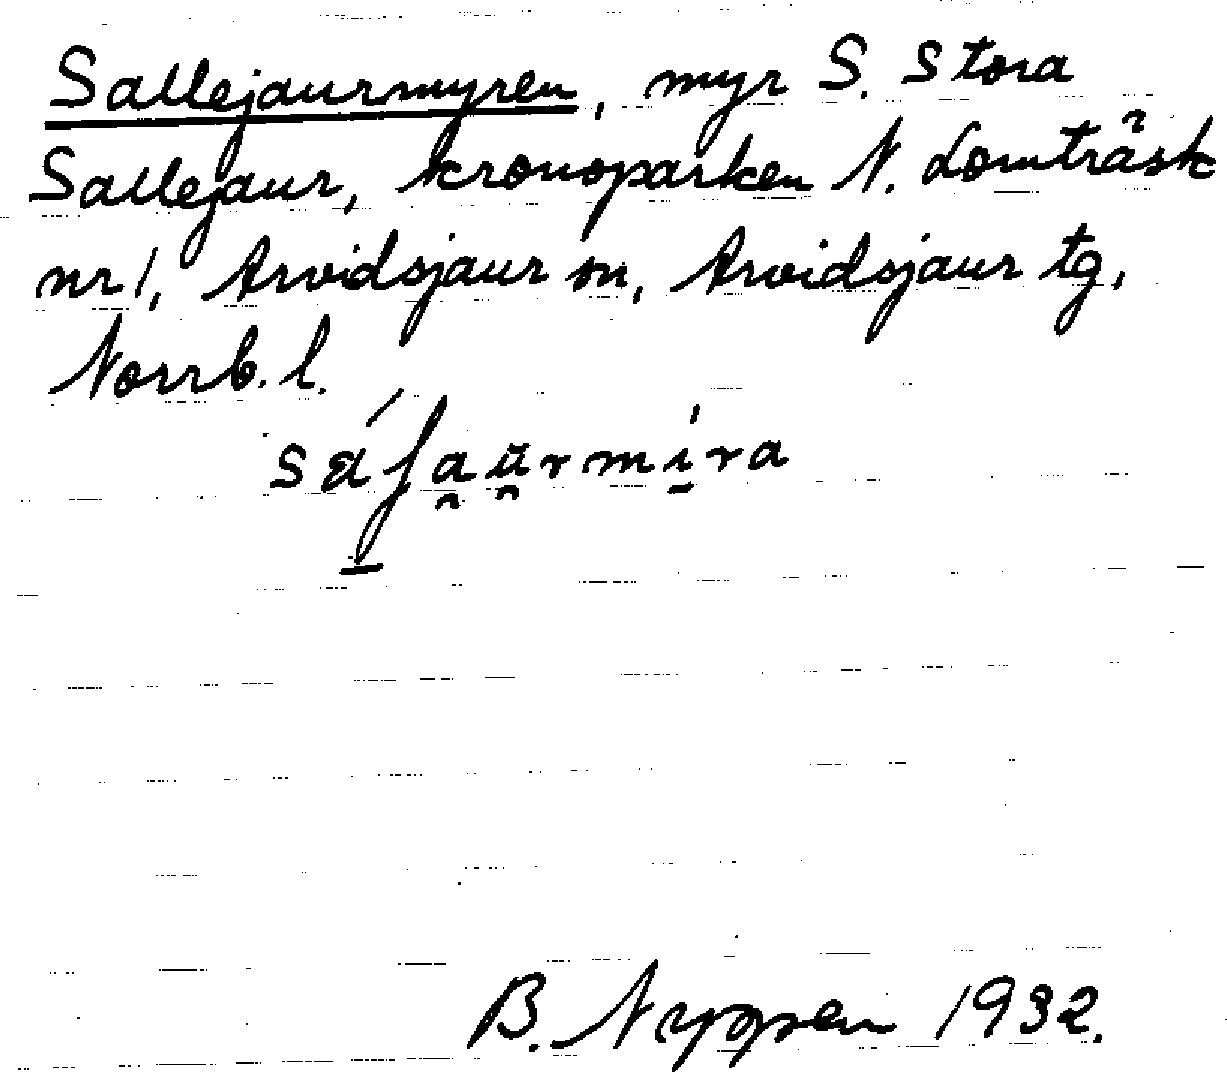 Sallejaurmyren, myr S. Stora
Sallejaur, kronoparken N. Lomträsk
nr 1, Arvidsjaur sn, Arvidsjaur tg,
Norrb. l.
B. Nyppen 1932.